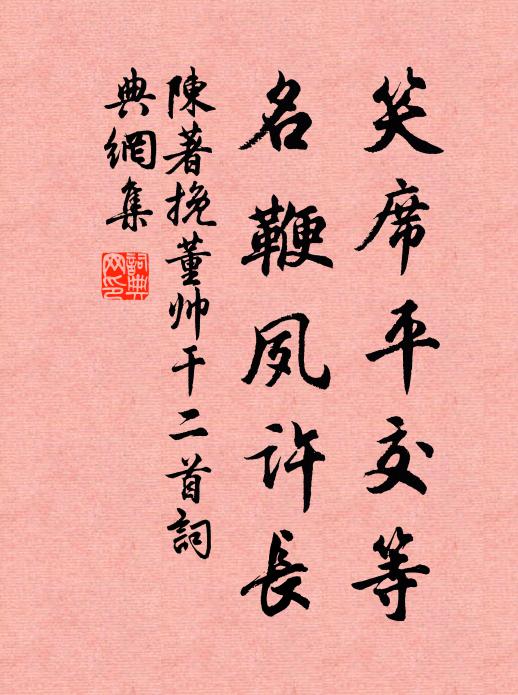 笑席平交等
名鞭夙许長
陳著挽董帅干二首詞
典網集
詞典网印